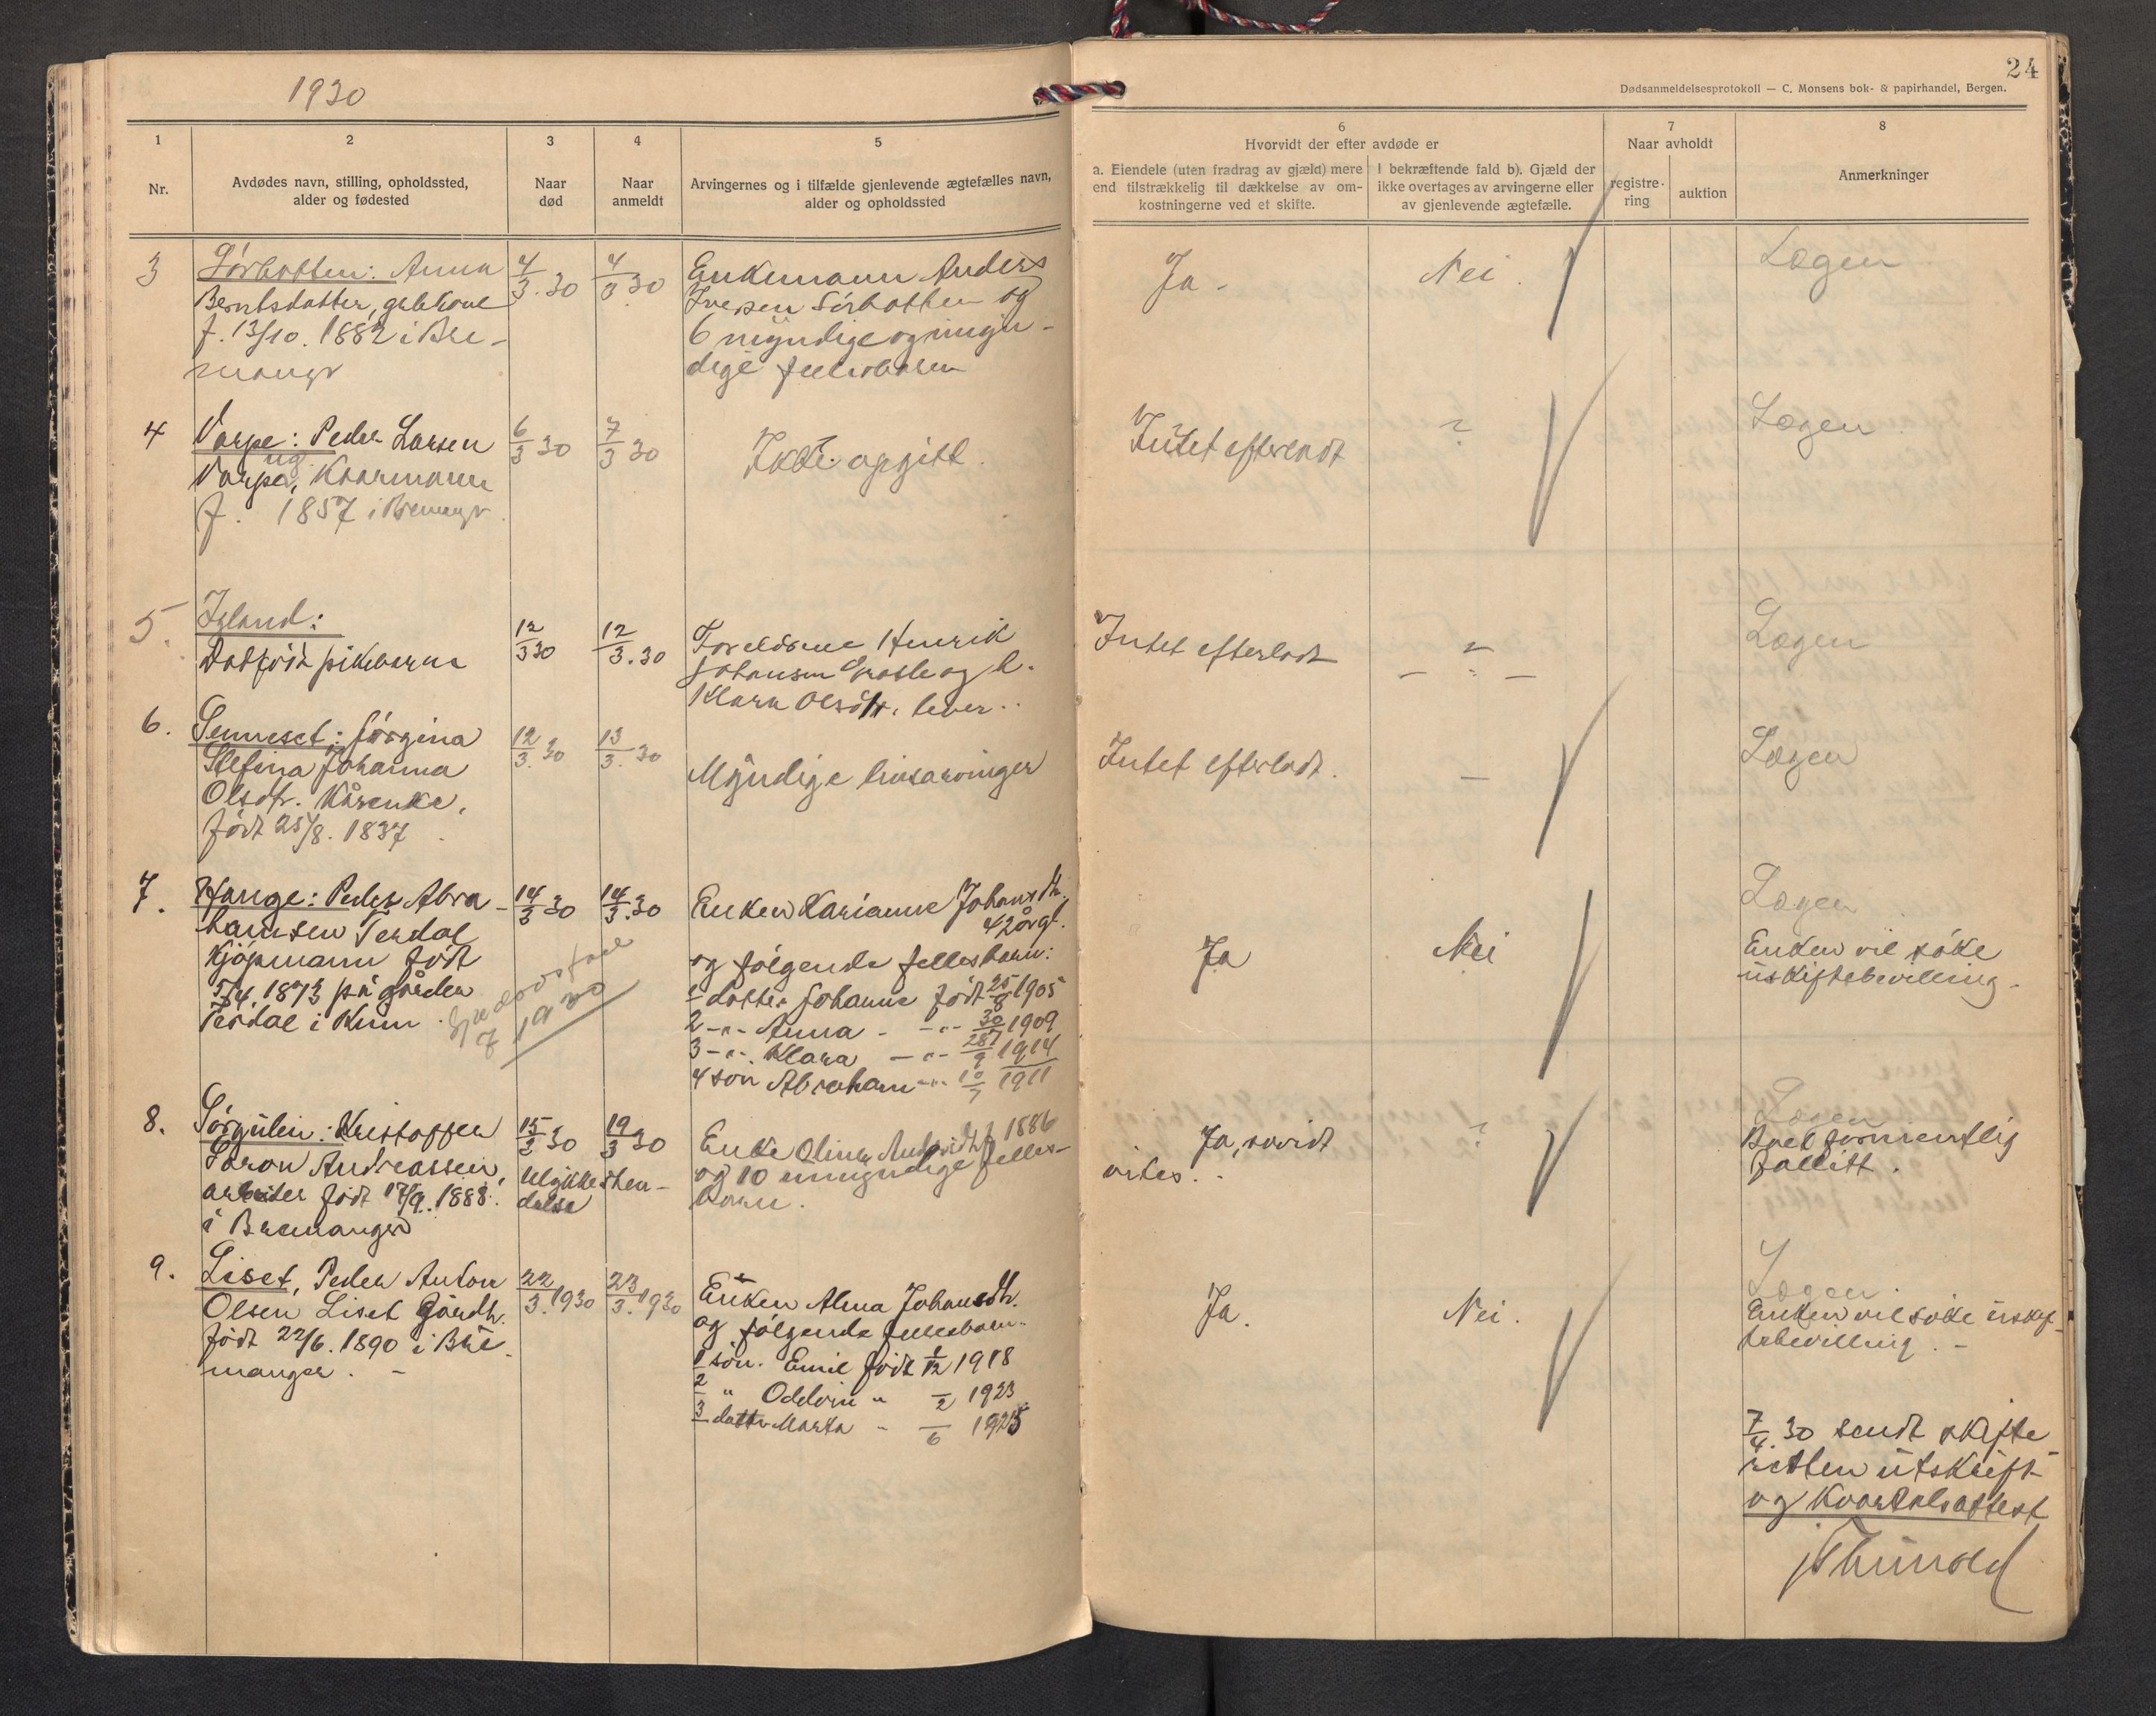 1930
24
Dødsanmeldelsesprotokoll — C. Monsens bok- & papirhandel, Bergen.
1
Nr.
2
Avdødes navn, stilling, opholdssted,
alder og fødested
3
Naar
død
4
Naar
anmeldt
5
Arvingernes og i tilfælde gjenlevende ægtefælles navn,
alder og opholdssted
6
Hvorvidt der efter avdøde er
a. Eiendele (uten fradrag av gjæld) mere
end tilstrækkelig til dækkelse av om-
kostningerne ved et skifte.
I bekræftende fald b). Gjæld der
ikke overtages av arvingerne eller
av gjenlevende ægtefælle.
7
Naar avholdt
registre-
ring
auktion
8
Anmerkninger
3
Sørbotten: Anna
Berntsdatter, gårdkone
f. 13/10. 1882 i Bre-
manger
4/3.30
4/3 30
Enkemann Anders
Iversen Sörbotten og
6 myndige og umyn-
dige fellesbarn
Ja -
Nei.
Legen
4
Varpe: Peder Larsen
Varpe, Kaarmann
f. 1857 i Bremangr.
6/3 30
7/3 30
Ikke opgitt.
Intet efterladt
?
Legen
5.
Igland:
Dødfödt pikebarn
12/3 30
12/3.30
Foreldrene Henrik
Johansen og h.
Klara Olsdtr. lever..
Intet efterladt
Legen
6.
Senneset: Jörgina
Stefina Johanna
Olsdtr. Kårenke,
födt 25/8. 1837
12/3.30
13/3.30
Myndige livsarvinger
Intet efterladt.
—
Legen
7.
Hauge: Peder Abra-
hamsen Terdal
Kjöpmann födt
5/4. 1873 på gården
Terdal i Kinn.
1930
14/3 30
14/3.30
Enken Karianne Johansdtr.
42 år gl.
og fölgende fellesbarn:
1 datter Johanne födt 25/8 1905
2 -"- Anna - -"- 30/ 1909
3 -"- Klara -"- 28/9 1914
4 sön Abraham -"- 10/7 1911
Ja
Nei
Legen
Enken vil söke
uskiftebevilling.
8.
Sörgulen: Kristoffer
Søron Andreassen,
arbeider födt 17/9. 1888.
i Bremanger
15/2 30
19/3 30
Ulykkeshen-
delse
Enke Oline f 1886
og 10 umyndige felles-
barn.
Ja, savidt
vites..
?
Legen
Boet formentlig
fallitt.
9.
Liset, Peder Anton
Olsen Liset Gårdbr.
födt 22/6. 1890 i Bre-
manger. -
22/3.1930
23/3.1930
Enken Alma Johansdtr.
og fölgende fellesbarn.
1 sön. Emil födt 1/12 1918
2 " Oddvin " /2 1923
3 datter Marta - /6 1925
Ja.
Nei.
Legen.
Enken vil söke uskif-
tebevilling. -
7/4.30 sendt skifte-
retten utskrift
og kvartalsattest